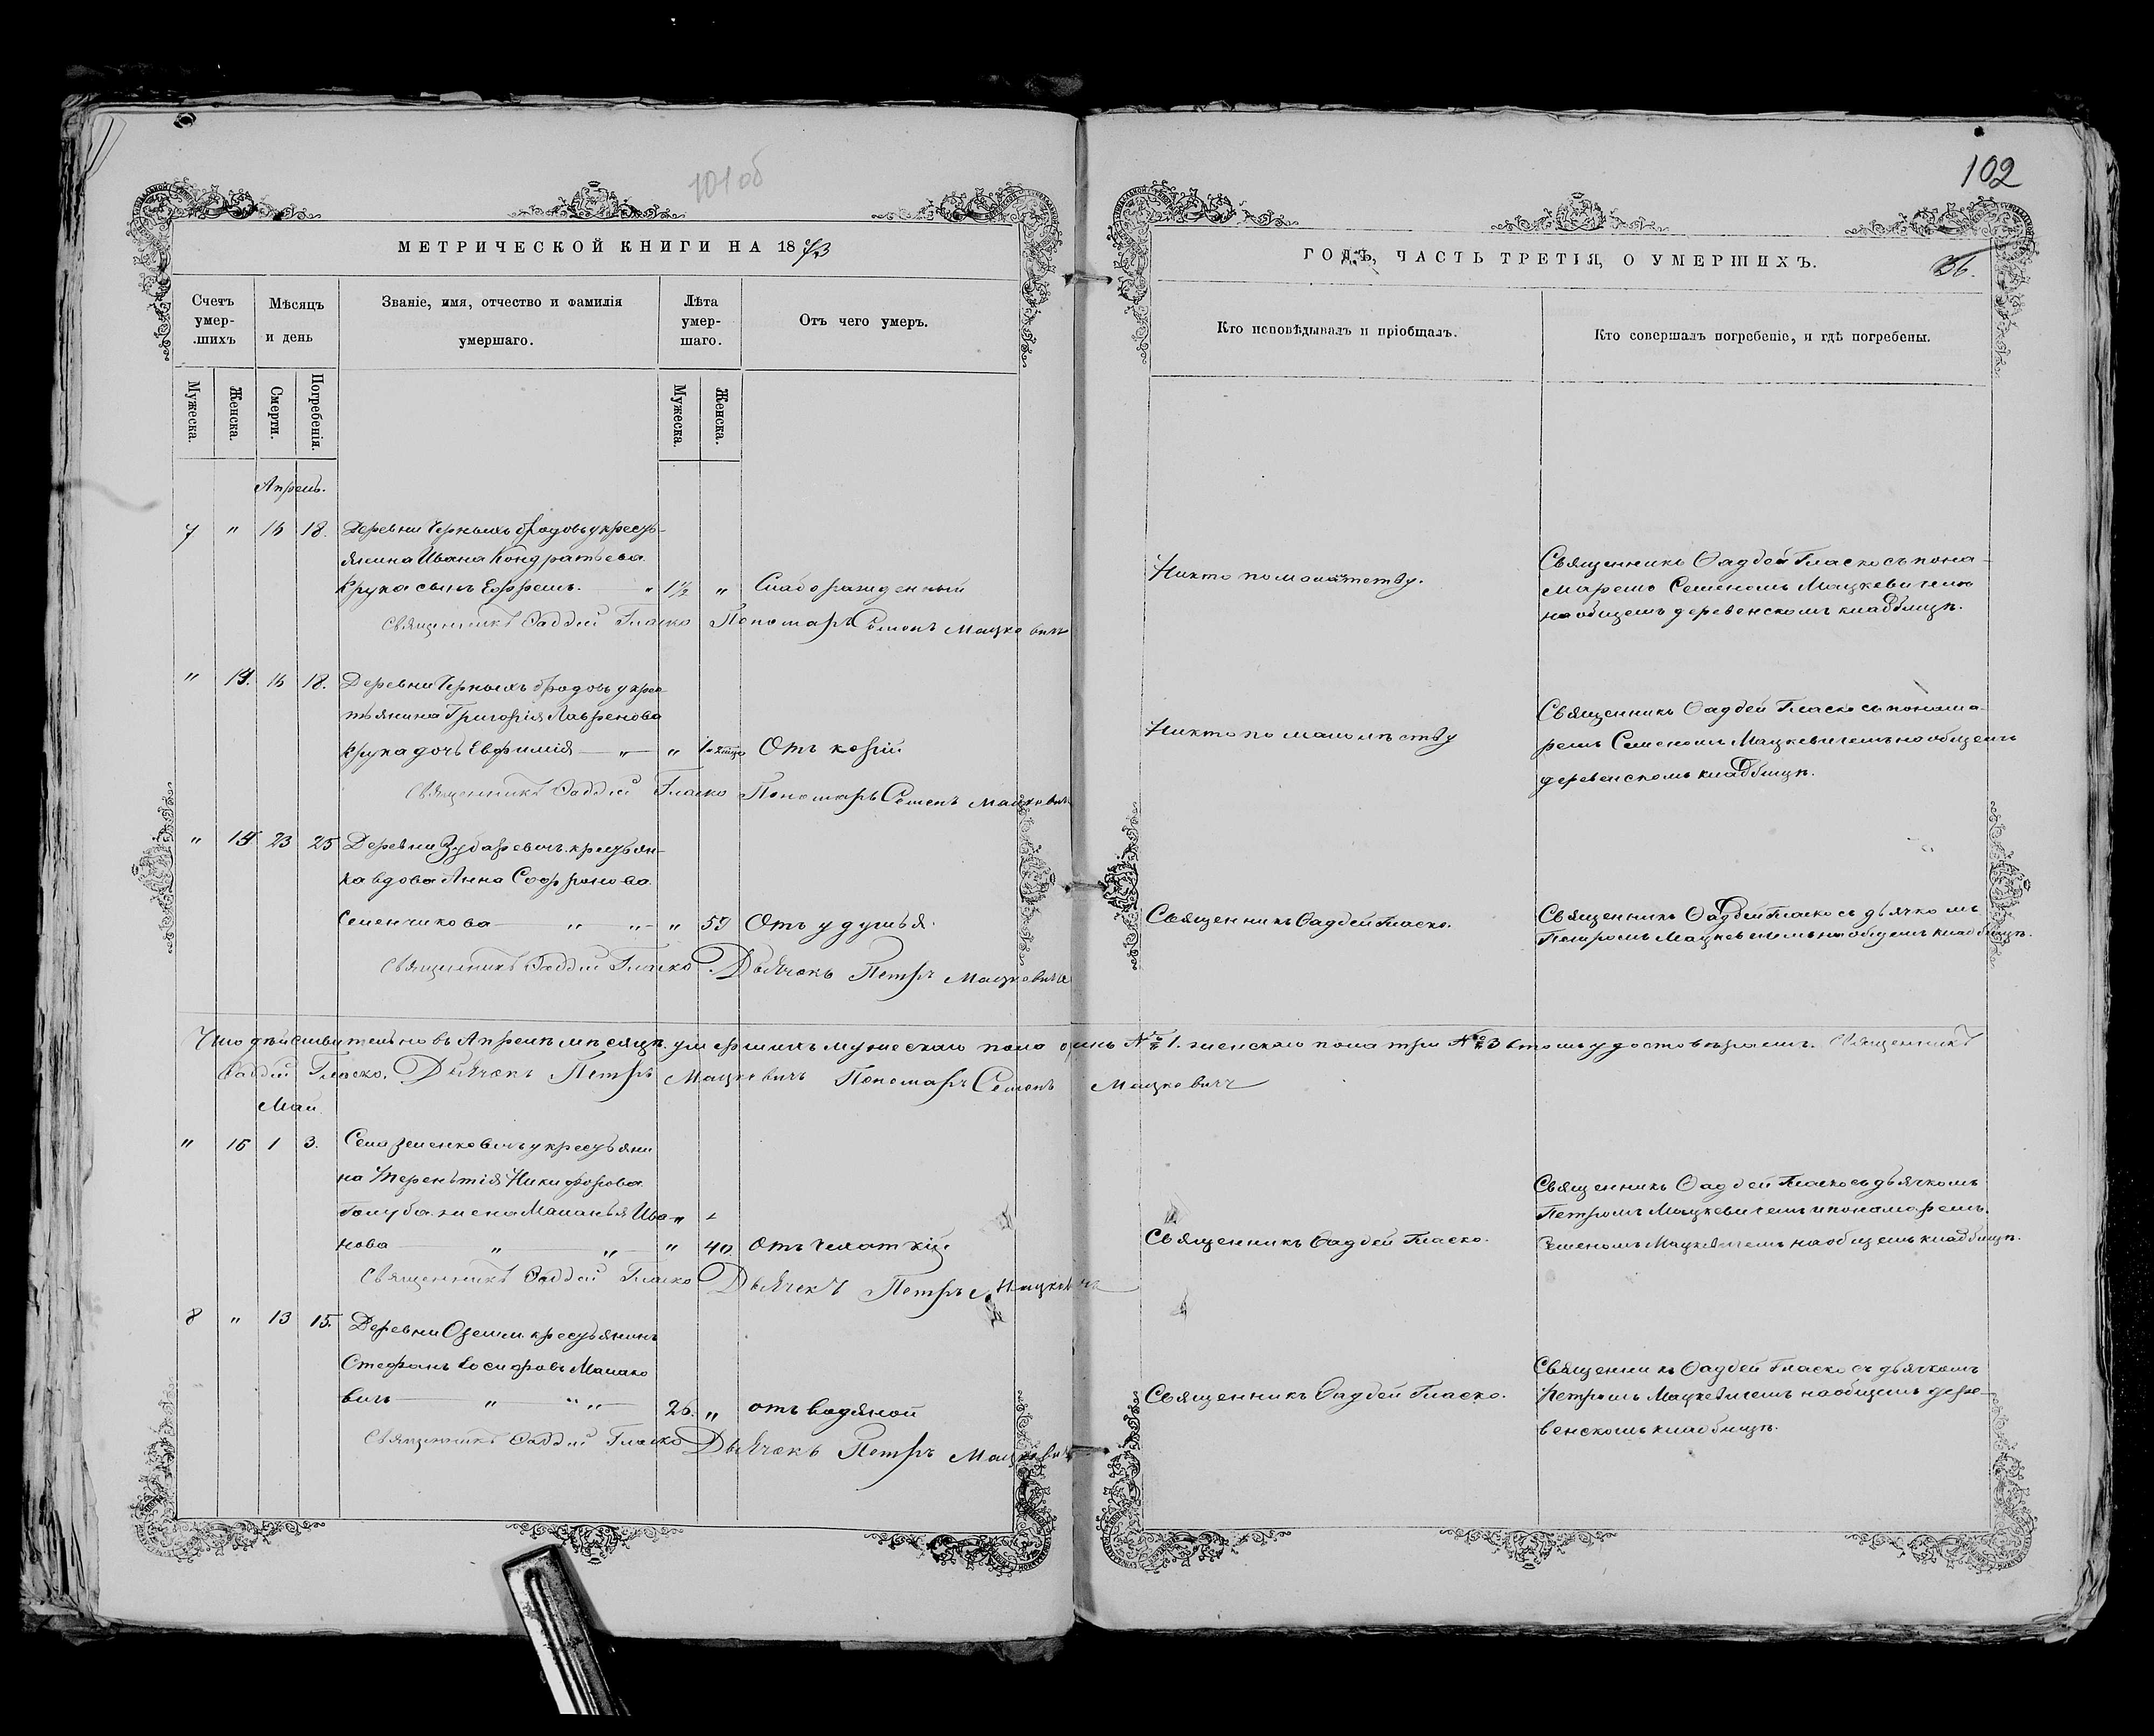 101об
МЕТРИЧЕСКОЙ КНИГИ НА 1873
Счетъ умер-шихъ
Мѣсяцъ и день
Званіе, имя, отчество и фамилія умершаго.
Лѣта умер-шаго.
Отъ чего умеръ.
Мужеска.
Женска.
Смерти.
Погребенія.
Мужеска.
Женска.
Апрель.
7 " 16 18. Деревни Черныхъ бродовъ у кресть-
янина Ивана Кондратьева
Крука сынъ Ефремъ. " 1½ " Слаборожденный
Священникъ Фаддей Гласко Пономарь Семенъ Мацкевичъ
" 16 18. Деревни Черныхъ бродовъ у крес-
тьянина Григорія Лавренова
Крука дочь Евфимія " " Отъ корій
Священникъ Фаддей Гласко Пономарь Семенъ Мацкевичъ
" 23 25 Деревни Зубаревичъ крестьян-
ка вдова Анна Софронова
Семенчикова " " " 59 Отъ удушья.
Священникъ Фаддей Гласко. Дьячекъ Петръ Мацкевичъ
Что дѣйствительно въ Апрелѣ мѣсяцѣ умершихъ мужескаго пола одинъ № 1. женскаго пола три № 3 въ томъ удостовѣряемъ. Священникъ
Фаддей Гласко. Дьячекъ Петръ Мацкевичъ Пономарь Семенъ Мацкевичъ
Май
" 16 1 3. Села Зеленковичъ у крестьяни
на Терентія Никифорова
Голуба жена Маланья Ива-
нова " " " 40. Отъ чехотки
Священникъ Фаддей Гласко Дьячекъ Петръ Мацкевичъ
8 " 13 15. Деревни Оземли крестьянинъ
Стефанъ Іосифовъ Малако
вичъ " " 26. " отъ водяной
Священникъ Фаддей Гласко Дьячекъ Петръ Мацкевичъ
102
ГОДЪ, ЧАСТЬ ТРЕТІЯ, О УМЕРШИХЪ.
36.
Кто исповѣдывалъ и пріобщалъ.
Кто совершалъ погребеніе, и гдѣ погребены.
Никто по малолѣтству.
Священникъ Фаддей Гласко съ поно-
маремъ Семеномъ Мацкевичемъ
на общемъ деревенскомъ кладбищѣ.
Никто по малолѣтству
Священникъ Фаддей Гласко съ понома-
ремъ Семеномъ Мацкевичемъ на общемъ
деревенскомъ кладбищѣ.
Священникъ Фаддей Гласко.
Священникъ Фаддей Гласко съ дьячкомъ
Петромъ Мацкевичемъ на общемъ кладбищѣ.
Священникъ Фаддей Гласко.
Священникъ Фаддей Гласко съ дьячкомъ
Петромъ Мацкевичемъ и пономаремъ
Семеномъ Мацкевичемъ на общемъ кладбищѣ.
Священникъ Фаддей Гласко.
Священникъ Фаддей Гласко съ дьячкомъ
Петромъ Мацкевичемъ на общемъ дере-
венскомъ кладбищѣ.